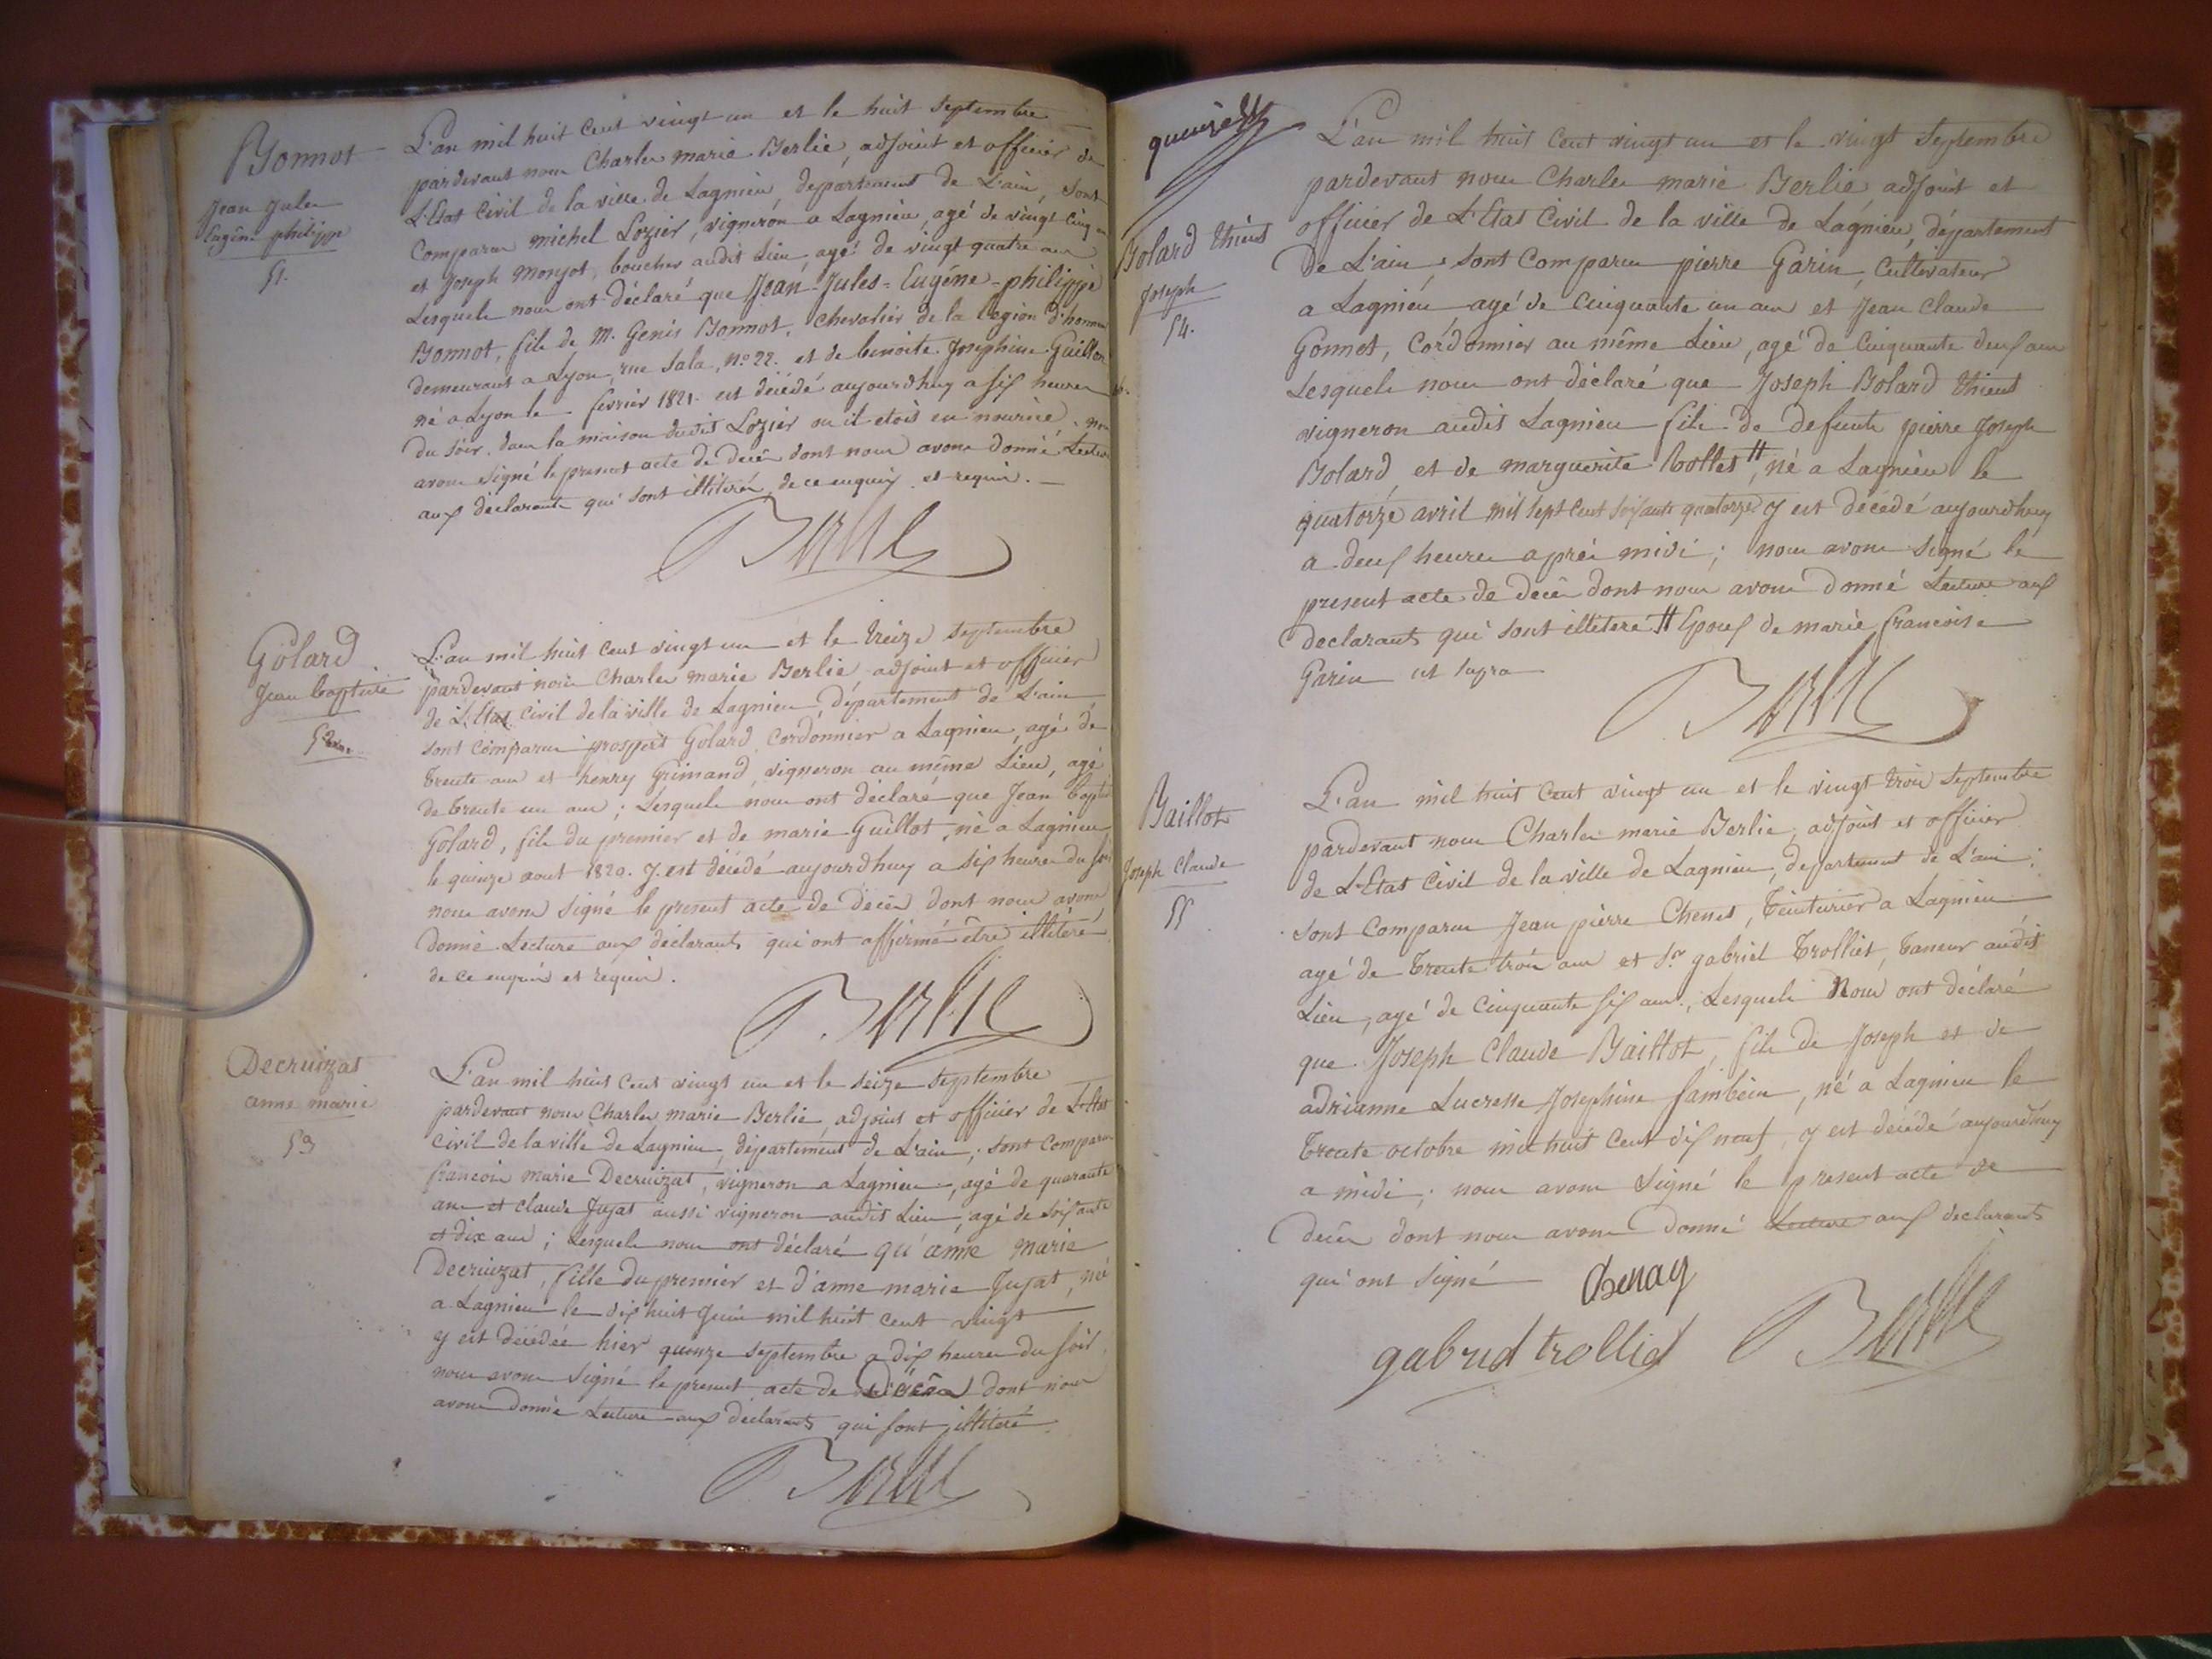 Bonnot
Jean Jules
Eugène philippe
51.
L'an mil huit cent vingt un et le huit septembre
pardevant nous Charles marie Berlie, adjoint et officier de
L'Etat Civil de la ville de Lagnieu, departement de L'ain, sont
Comparus michel Lozier, vigneron a Lagnieu, agé de vingt cinq ans
et Joseph Monjot, boucher audit Lieu, agé de vingt quatre ans
Lesquels nous ont déclaré que Jean-Jules-Eugéne-philippe
Bonnot, fils de M. Genis Bonnot, Chevalier de la Legion d'honneur
demeurant a Lyon, rue Sala, N.º 22. et de benoite Josephine Guillon
né a Lyon le fevrier 1821. est décédé aujourdhuy a six heures
du soir, dans la maison dudit Lozier ou il etoit en nourice, nous
avons signé le present acte de decès dont nous avons donné Lecture
aux déclarants qui sont illitérés de ce enquis et requis.
Berlie
Golard
Jean baptiste
52
L'an mil huit cent vingt un et le treize septembre
pardevant nous Charles marie Berlie, adjoint et officier
de L'Etat Civil de la ville de Lagnieu, département de L'ain
sont comparus prospert Golard Cordonnier a Lagnieu, agé de
trente ans et henry Grimand, vigneron au même Lieu, agé
de trente un ans; Lesquels nous ont déclaré que Jean baptiste
Golard, fils du premier et de marie Guillot, né a Lagnieu
le quinze aout 1820. y est décédé aujourdhuy a six heures du soir
nous avons signé le present acte de décès dont nous avons
donné Lecture aux déclarants qui ont affirmé être illitéré
de ce enquis et requis.
Berlie
Decruizat
anne marie
53
L'an mil huit cent vingt un et le seize septembre
pardevant nous Charles marie Berlie adjoint et officier de L'Etat
Civil de la ville de Lagnieu, département de L'ain, sont comparus
francois marie Decruizat, vigneron a Lagnieu, agé de quarante
ans et claude Jujat aussi vigneron audit Lieu, agé de soixante
et dix ans; Lesquels nous ont déclaré qu'anne marie
Decruizat, fille du premier et d'anne marie Jujat, née
a Lagnieu le dix huit Juin mil huit cent vingt
y est décédée hier quinze septembre a dix heures du soir
nous avons signé le present acte de décès dont nous
avons donné Lecture aux déclarants qui sont illitéré.
Berlie
Bolard thient
Joseph
54.
L'an mil huit Cent vingt un et le vingt Septembre
pardevant nous Charles marie Berlie adjoint et
officier de L'Etat Civil de la ville de Lagnieu, département
De L'ain, sont Comparus pierre Garin, Cultivateur
a Lagnieu agé de Cinquante un ans et Jean Claude
Gonnet, Cordonnier au même Lieu, agé de Cinquante deux ans
Lesquels nous ont déclaré que Joseph Bolard thient
vigneron audit Lagnieu fils de defunts pierre Joseph
Bolard, et de marguerite Collet #, né a Lagnieu le
quatorze avril mil sept cent soixante quatorze y est décédé aujourdhuy
a deux heures après midi; nous avons signé le
present acte de decès dont nous avons donné Lecture aux
declarants qui sont illetere # Epoux de marie francoise
Garin ut supra
Berlie
Baillot
Joseph Claude
55
L'an mil huit Cent vingt un et le vingt trois Septembre
pardevant nous Charles marie Berlie, adjoint et officier
de L'Etat Civil de la ville de Lagnieu, departement de L'ain;
sont Comparus Jean pierre Chenet, teinturier a Lagnieu
agé de trente trois ans et S.r gabriel trolliet, taneur audit
Lieu, agé de Cinquante six ans; Lesquels Nous ont déclaré
que Joseph Claude Baillot, fils de Joseph et de
adrianne Lucresse Josephine , né a Lagnieu le
trente octobre mil huit cent dix neuf, y est décédé aujourdhuy
a midi; nous avons Signé le present acte de
decès dont nous avons donné Lecture aux declarants
qui ont signé
Chenay
gabriel trolliet
Berlie